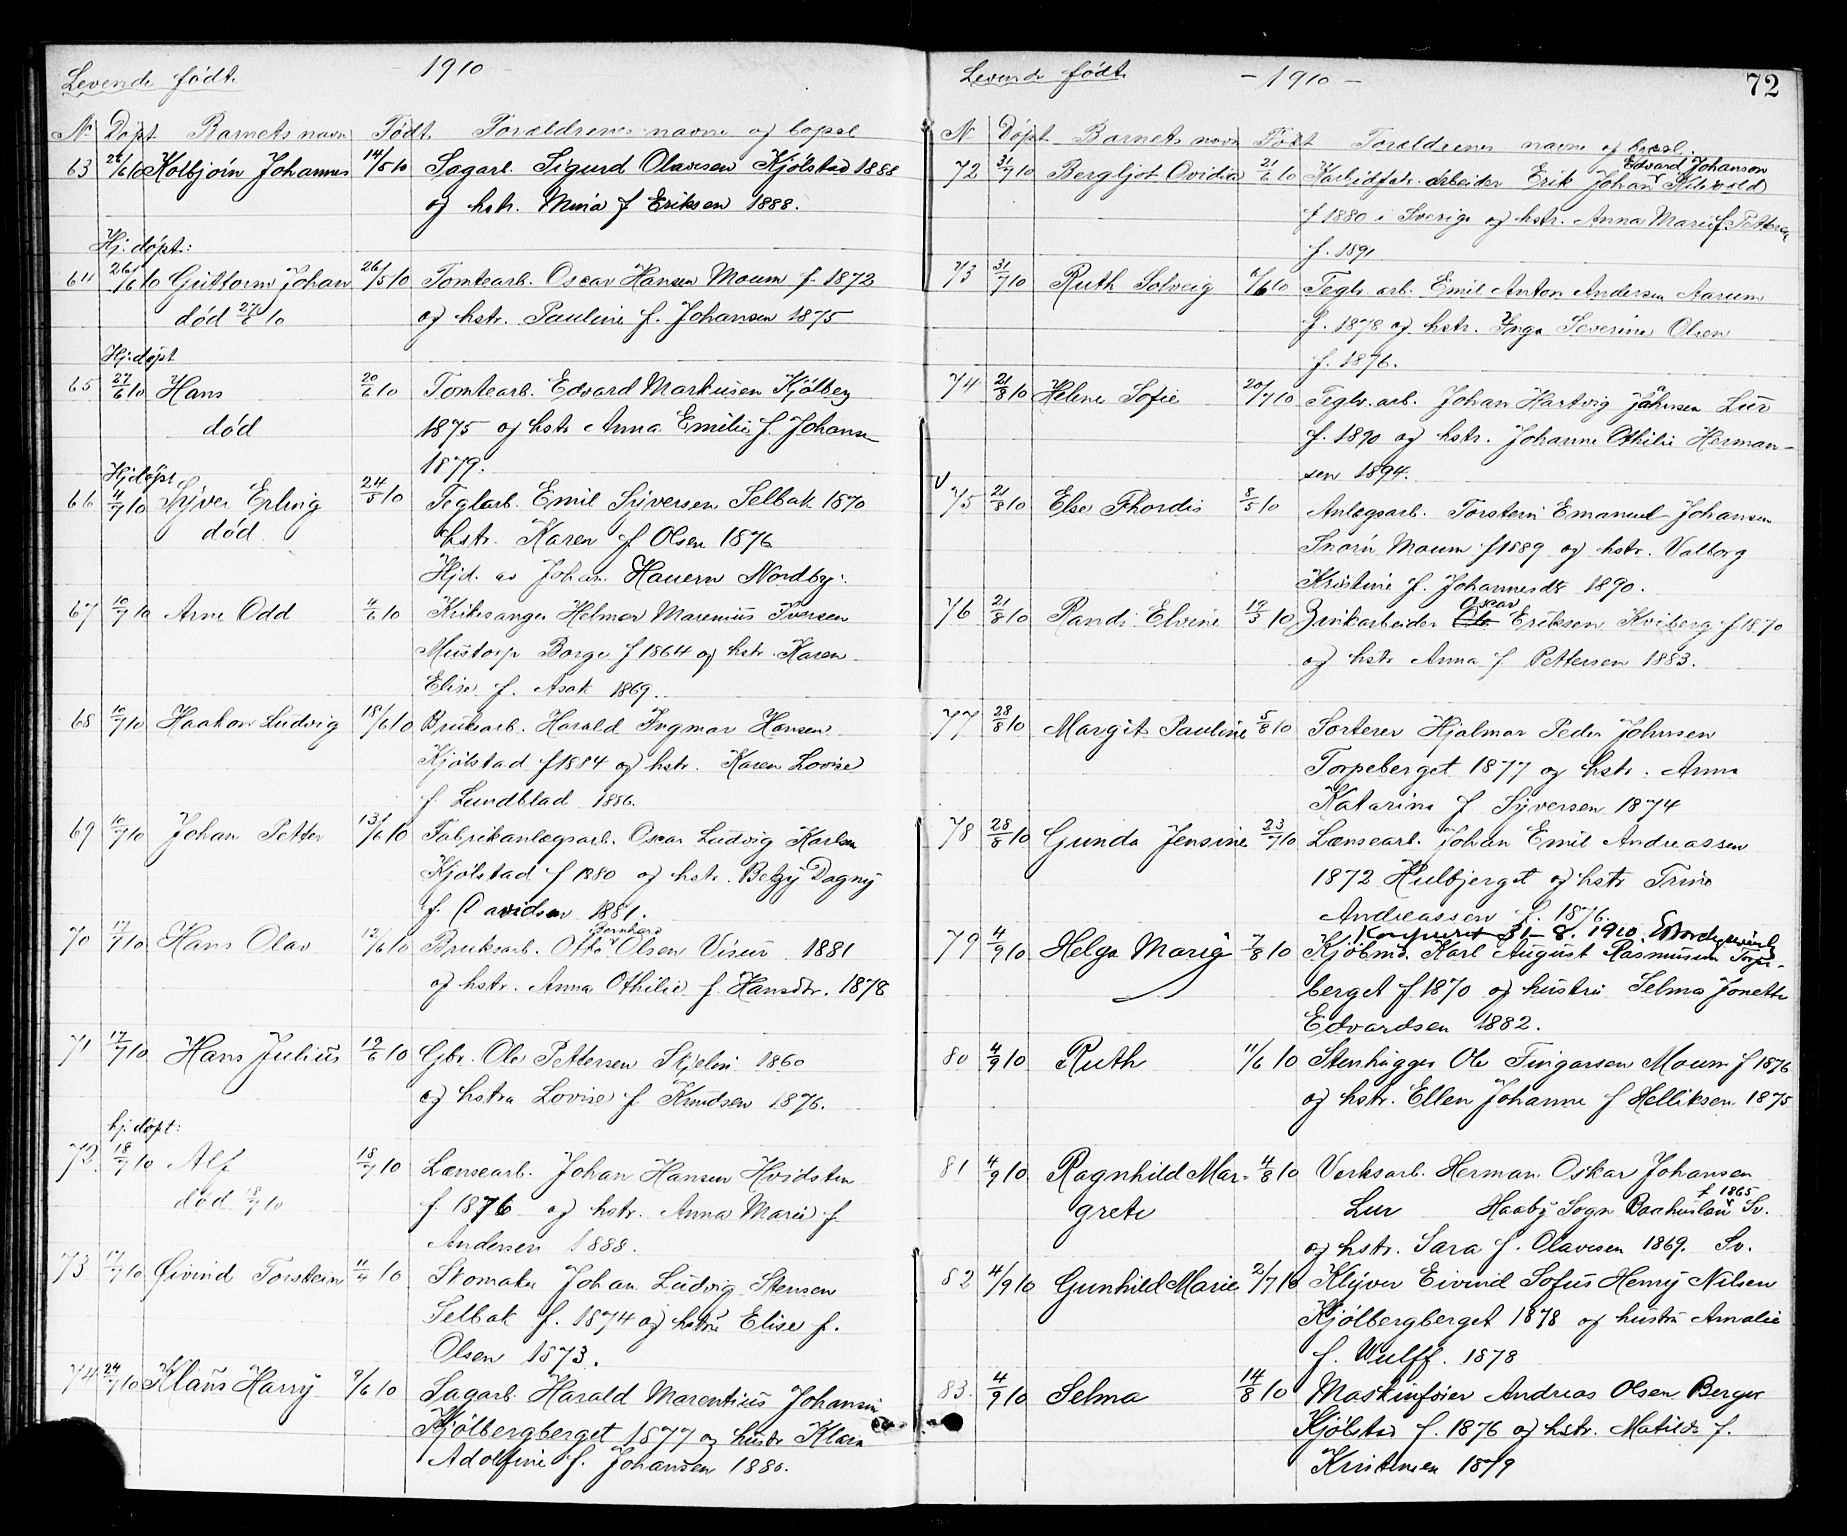 Levende født.
- 1910 -
No Døpt Barnets navn Født. Forældrenes navne og bopæl
63 26/6 10 Kolbjørn Johannes 14/5 10 Sagarb. Sigurd Olavesen Kjølstad 1888
og hstr. Mina f Eriksen 1888.
Hj. døpt:
64 26/6 10 Guttorm Johan 26/5 10 Tomtearb. Oscar Hansen Moum f. 1872
død 27/6 10 og hstr. Pauline f. Johansen 1875
Hj. døpt
65 27/6 10 Hans 20/6 10 Tomtearb. Edvard Markusen Kjølberg
død 1875 og hstr Anna Emilie f. Johans
1879.
Hj døpt
66 4/7 10 Syver Erling 24/5 10 Teglarb. Emil Syversen Selbak 1870
død hstr. Karen f Olsen 1876
Hjd. av Johan Hauern Nordby.
67 10/7 10 Arne Odd 4/6 10 Kirkesanger Helmer Marenius Iversen
Mustorp Borge f 1864 og hstr. Karen
Elise f. Asak 1869.
68 10/7 10 Haakon Ludvig 18/6 10 Bruksarb. Harald Ingmar Hansen
Kjølstad f 1884 og hstr. Karen Lovise
f. Lundblad 1886.
69 10/7 10 Johan Petter 13/6 10 Fabrikanlægsarb. Oscar Ludvig Karlsen
Kjølstad f 1880 og hstr. Betzy Dagny
f. Davidsen 1881.
Bernhard
70 17/7 10 Hans Olav 12/6 10 Bruksarb. Otto Olsen Visur 1881
og hstr. Anna Othilie f. Hansdtr. 1878
71 17/7 10 Hans Julius 19/6 10 Gbr. Ole Pettersen Skjelin 1860
og hstra Lovise f Knudsen 1876.
hj. døpt:
72. 18/7 10 Alf 18/7 10 Lænsearb. Johan Hansen Hvidsten
død 18/7 10 f. 1876 og hstr. Anna Marie f.
Andersen 1888.
73 17/7 10 Øivind Torstein 11/4 10 Skomaker Johan Ludvig Stensen
Selbak f. 1874 og hstru Elise f.
Olsen 1873.
74 24/7 10 Klaus Harry 9/6 10 Sagarb. Harald Marentius Johansen
Kjølbergberget 1877 og hustr Klara
Adolfine f. Johansen 1880.
Levende født.
- 1910 -
72
N Døpt. Barnets navn Født Forældrenes navne og bopæl.
Edvard Johanson
72 31/7 10 Bergljot Ovidia 21/6 10 Karbidfabr. arbeider Erik Johan
f 1880 i Sverige og hstr. Anna Marie f. Petters
f. 1891
73 31/7 10 Ruth Solveig 6/6 10 Teglv. arb. Emil Anton Andersen Aarum
f. 1878 og hstr. Inga Severine Olsen
f. 1876.
74 21/8 10 Helene Sofie 20/7 10 Teglv. arb. Johan Hartvig Johnsen Lur
f. 1890 og hstr. Johanne Othilie Herman-
sen 1894.
v 75 21/8 10 Else Thordis 8/5 10 Anlægsarb. Torstein Emanuel Johansen
Snorin Moum f 1889 og hstr. Valborg
Kristine f. Johannesdtr 1890.
Oscar
76 21/8 10 Randi Elvine 19/3 10 Zinkarbeider Ole Eriksen Kviberg f 1870
og hstr Anna f Pettersen 1883.
77 28/8 10 Margit Pauline 5/8 10 Sorterer Hjalmar Peder Johnsen
Torpeberget 1877 og hstr. Anna
Katarina f Syversen 1874
78 28/8 10 Gunda Jensine 23/7 10 Lænsearb. Johan Emil Andreassen
1872 Hulbjerget og hstr Trine
Andreassen f. 1876.
31-8. 1910
79 4/9 10 Helga Marie 7/8 10 Kjøbmd. Karl August Rasmussen Torpe-
berget f 1870 og hustru Selma Jonette
Edvardsen 1882.
80 4/9 10 Ruth 11/6 10 Stenhugger Ole Fingarsen Moum f 1876
og hstr. Ellen Johanne f Helliksen 1875
81 4/9 10 Ragnhild Mar- 4/8 10 Verksarb. Herman Oskar Johansen
f 1865
grete Lur Haaby Sogn Baahuslän Sv.
og hstr. Sara f. Olavesen 1869. Sv.
82 4/9 10 Gunhild Marie 2/7 10 Klyver Eivind Sofus Henry Nilsen
Kjølbergberget 1878 og hustru Amalie
f. Wulff. 1878
83. 4/9 10 Selma 14/8 10 Maskinfører Andreas Olsen Berger
Kjølstad f. 1876 og hstr. Matilde f.
Kristensen 1879